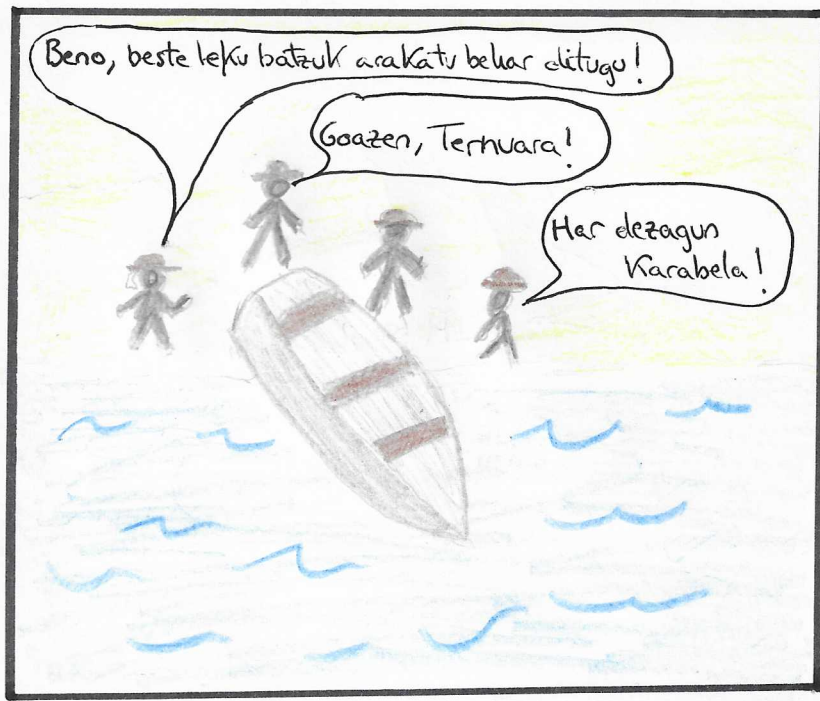 Beno, beste leku batzuk arakatu behar ditugu!
Goazen, Ternuara!
Har dezagun
Karabela!